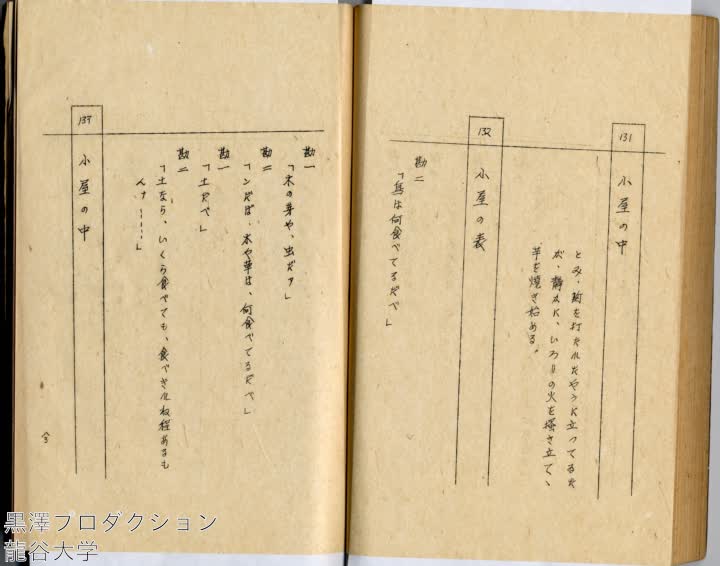 131
小屋の中
とみ、釘を打たれたやうに立つてるた
が、静かに、いろりの火を掻き立てゝ
芋を焼き始める。
132
小屋の表
勘二
「鳥は何食べてるだべ」
勘一
「木の芽や、虫だァ」
勘二
「ンだば、木や草は、何食べてるだべ」
勘一
「土だべ」
勘二
「土なら、いくら食べても、食べきれね程あるも
んナ————」
小屋の中
黒澤プロダクション
龍谷大学